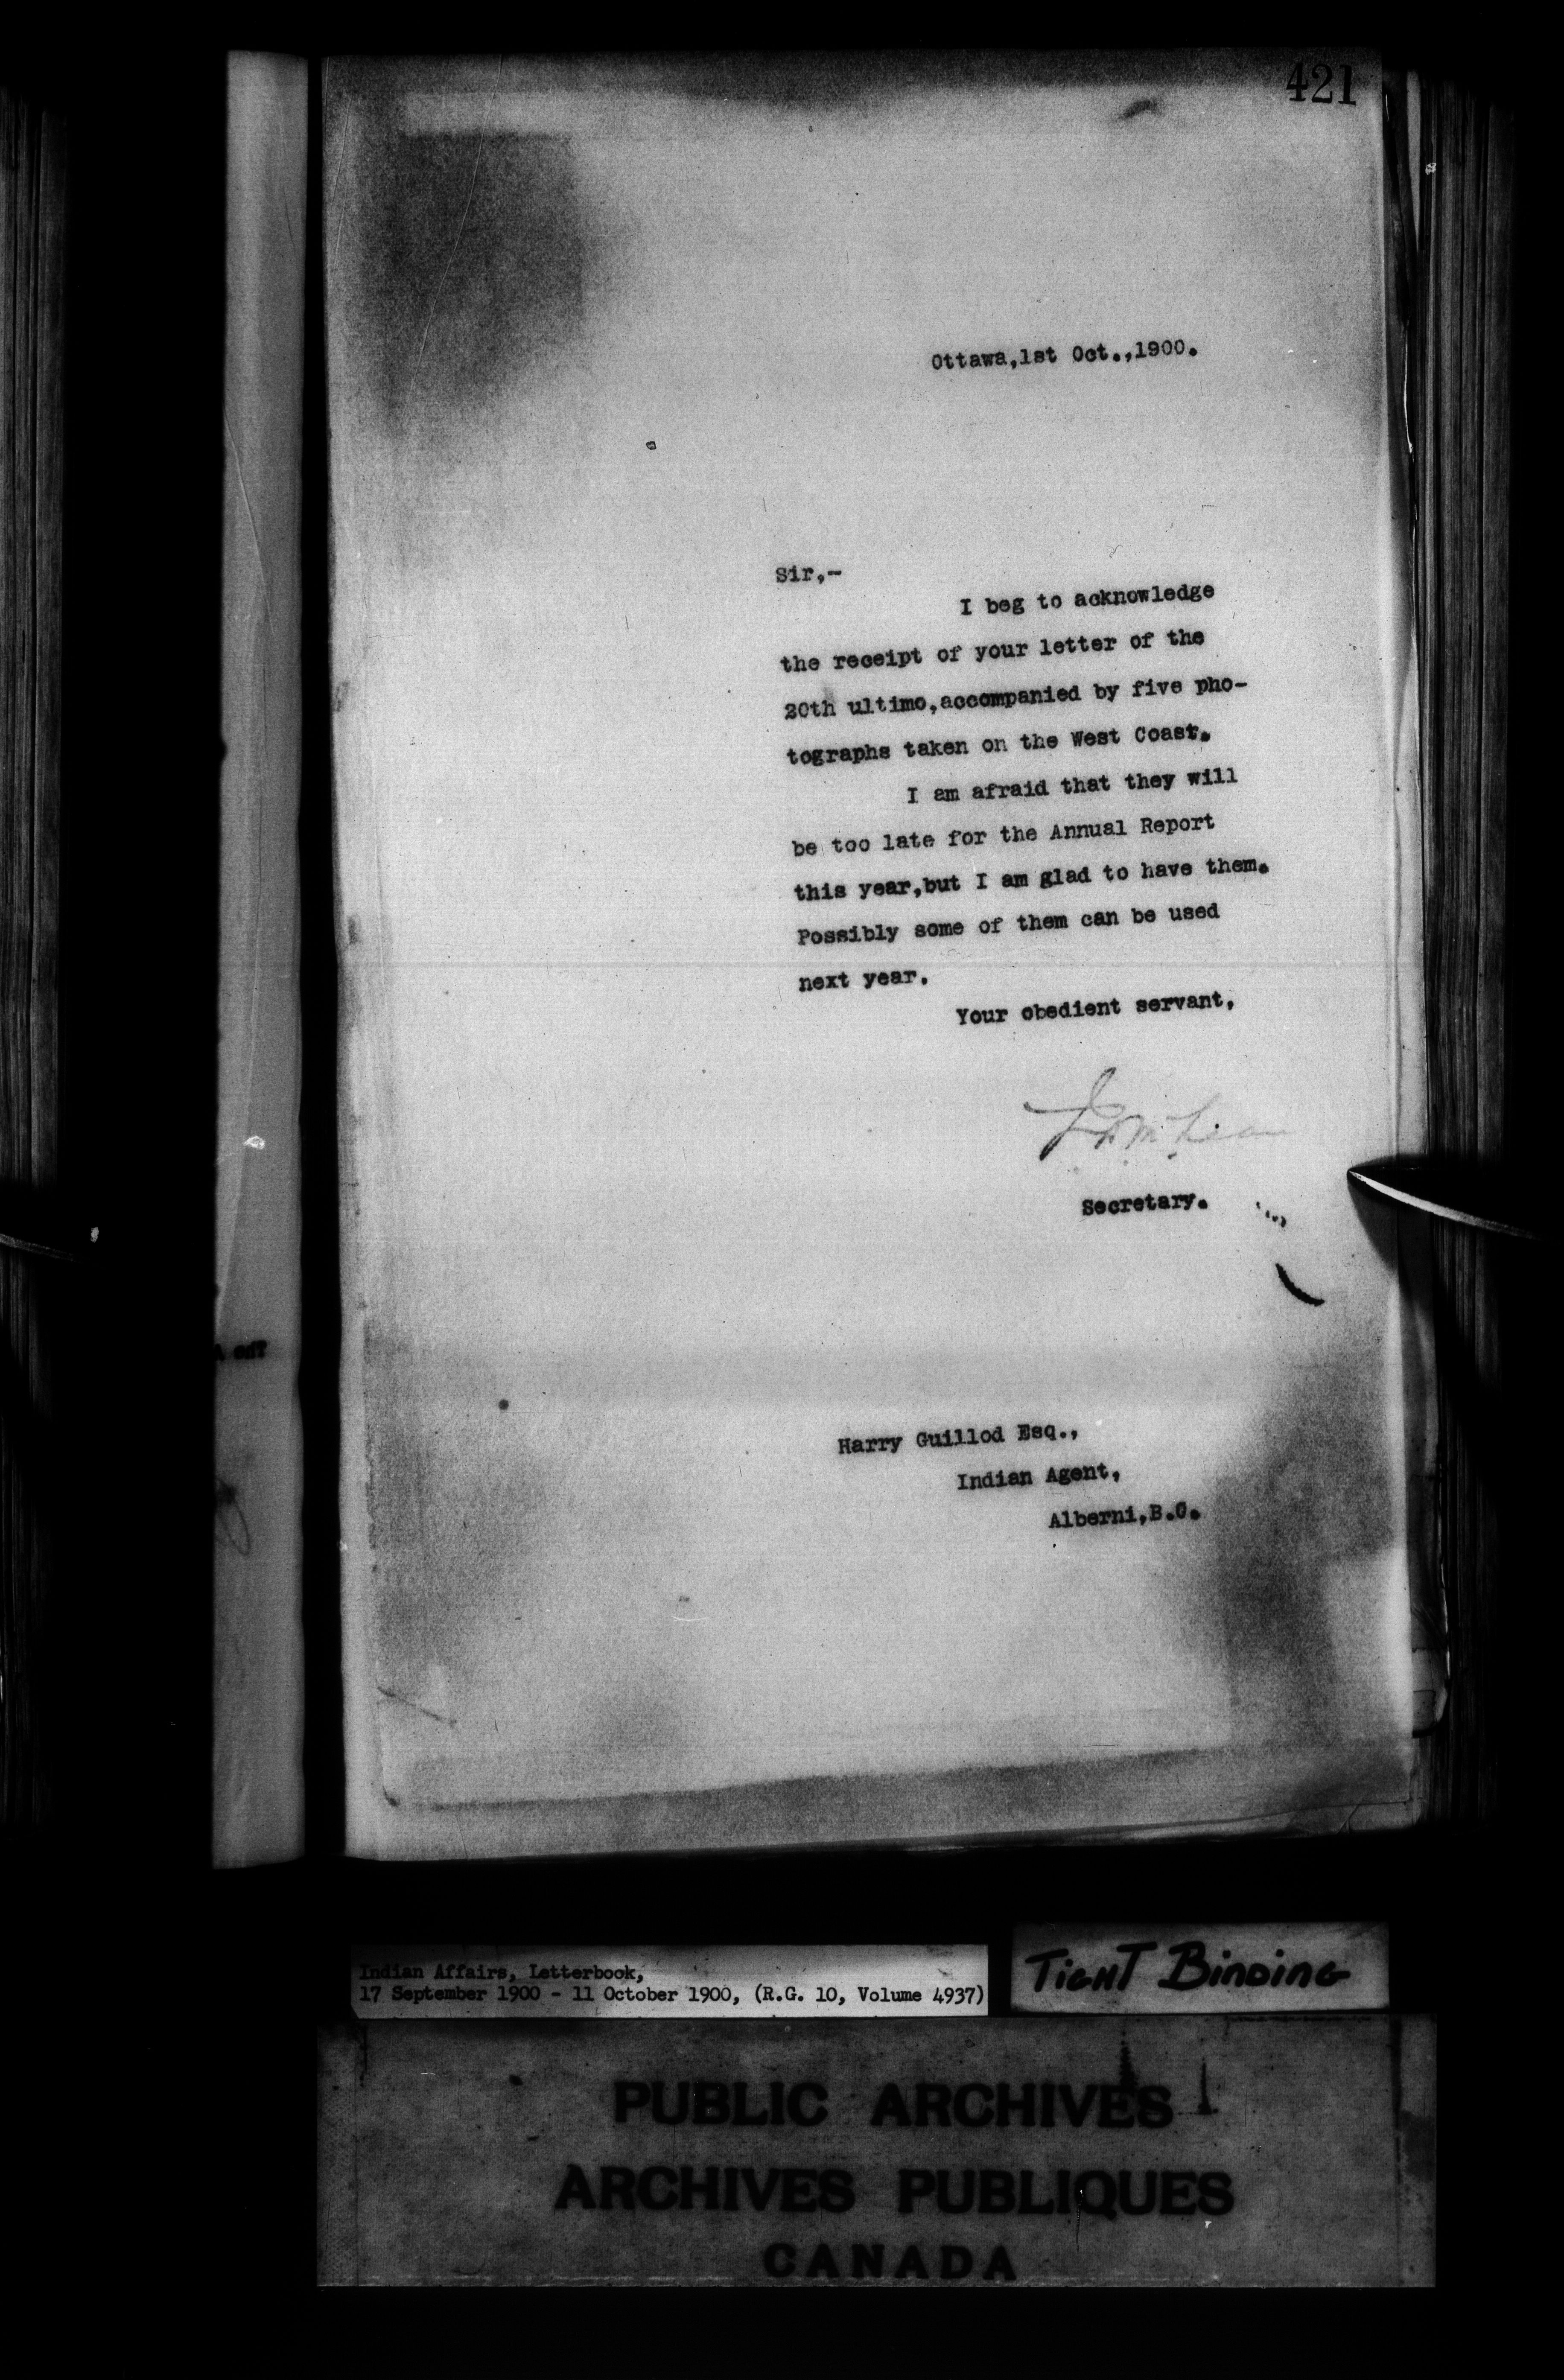 421
Ottawa,1st Oct.,1900.
Sir,-
I beg to acknowledge
the receipt of your letter of the
20th ultimo,accompanied by five pho-
tographs taken on the West Coast.
I am afraid that they will
be too late for the Annual Report
this year,but I am glad to have them.
Possibly some of them can be used
next year.
Your obedient servant,
Secretary.
Harry Guillod Esq.,
Indian Agent,
Alberni,B.C.
Indian Affairs, Letterbook,
17 September 1900 - 11 October 1900, (R.G. 10, Volume 4937)
TIGHT BINDING
PUBLIC ARCHIVES
ARCHIVES PUBLIQUES
CANADA